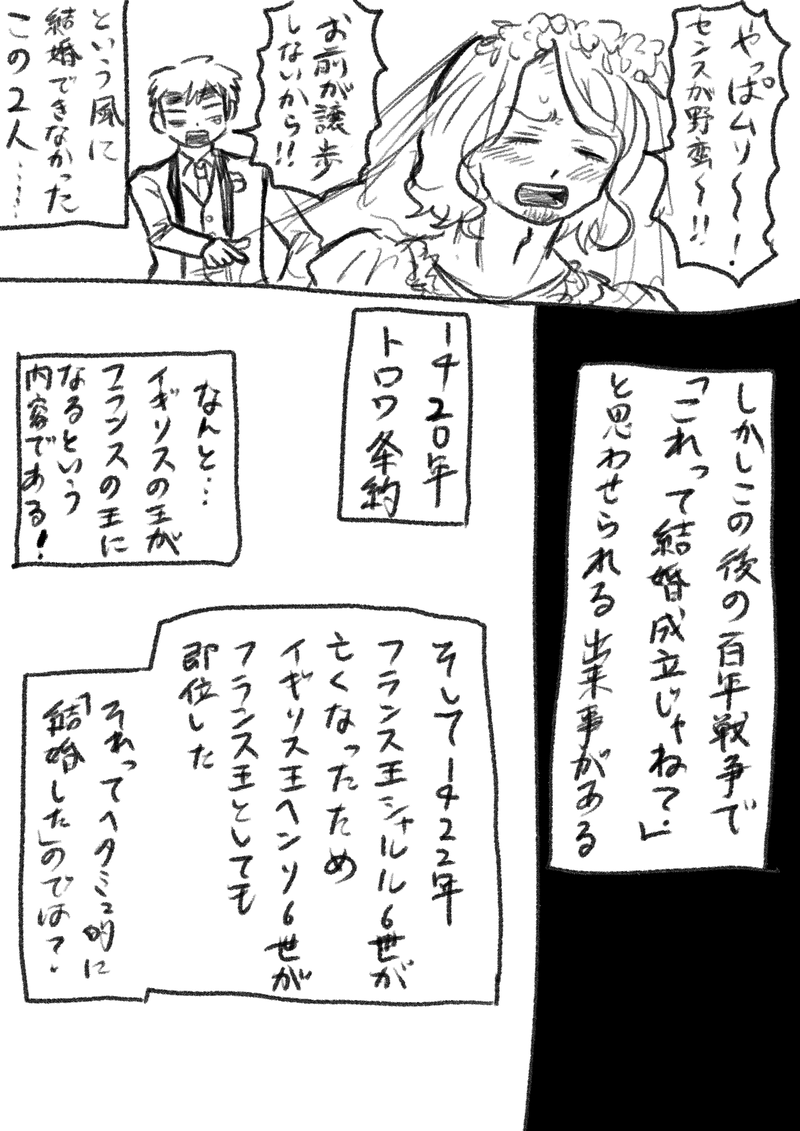 やっぱムリ〜〜!
センスが野蛮〜!!
お前が譲歩
しないから!!
という風に
結婚できなかった
この2人……
しかしこの後の百年戦争で
「これって結婚成立じゃね?」
と思わせられる出来事がある
1420年
トロワ条約
なんと…
イギリスの王が
フランスの王に
なるという
内容である!
そして1422年
フランス王シャルル6世が
亡くなったため
イギリス王ヘンリ6世が
フランス王としても
即位した
それってヘタミュ的に
「結婚した」のでは?